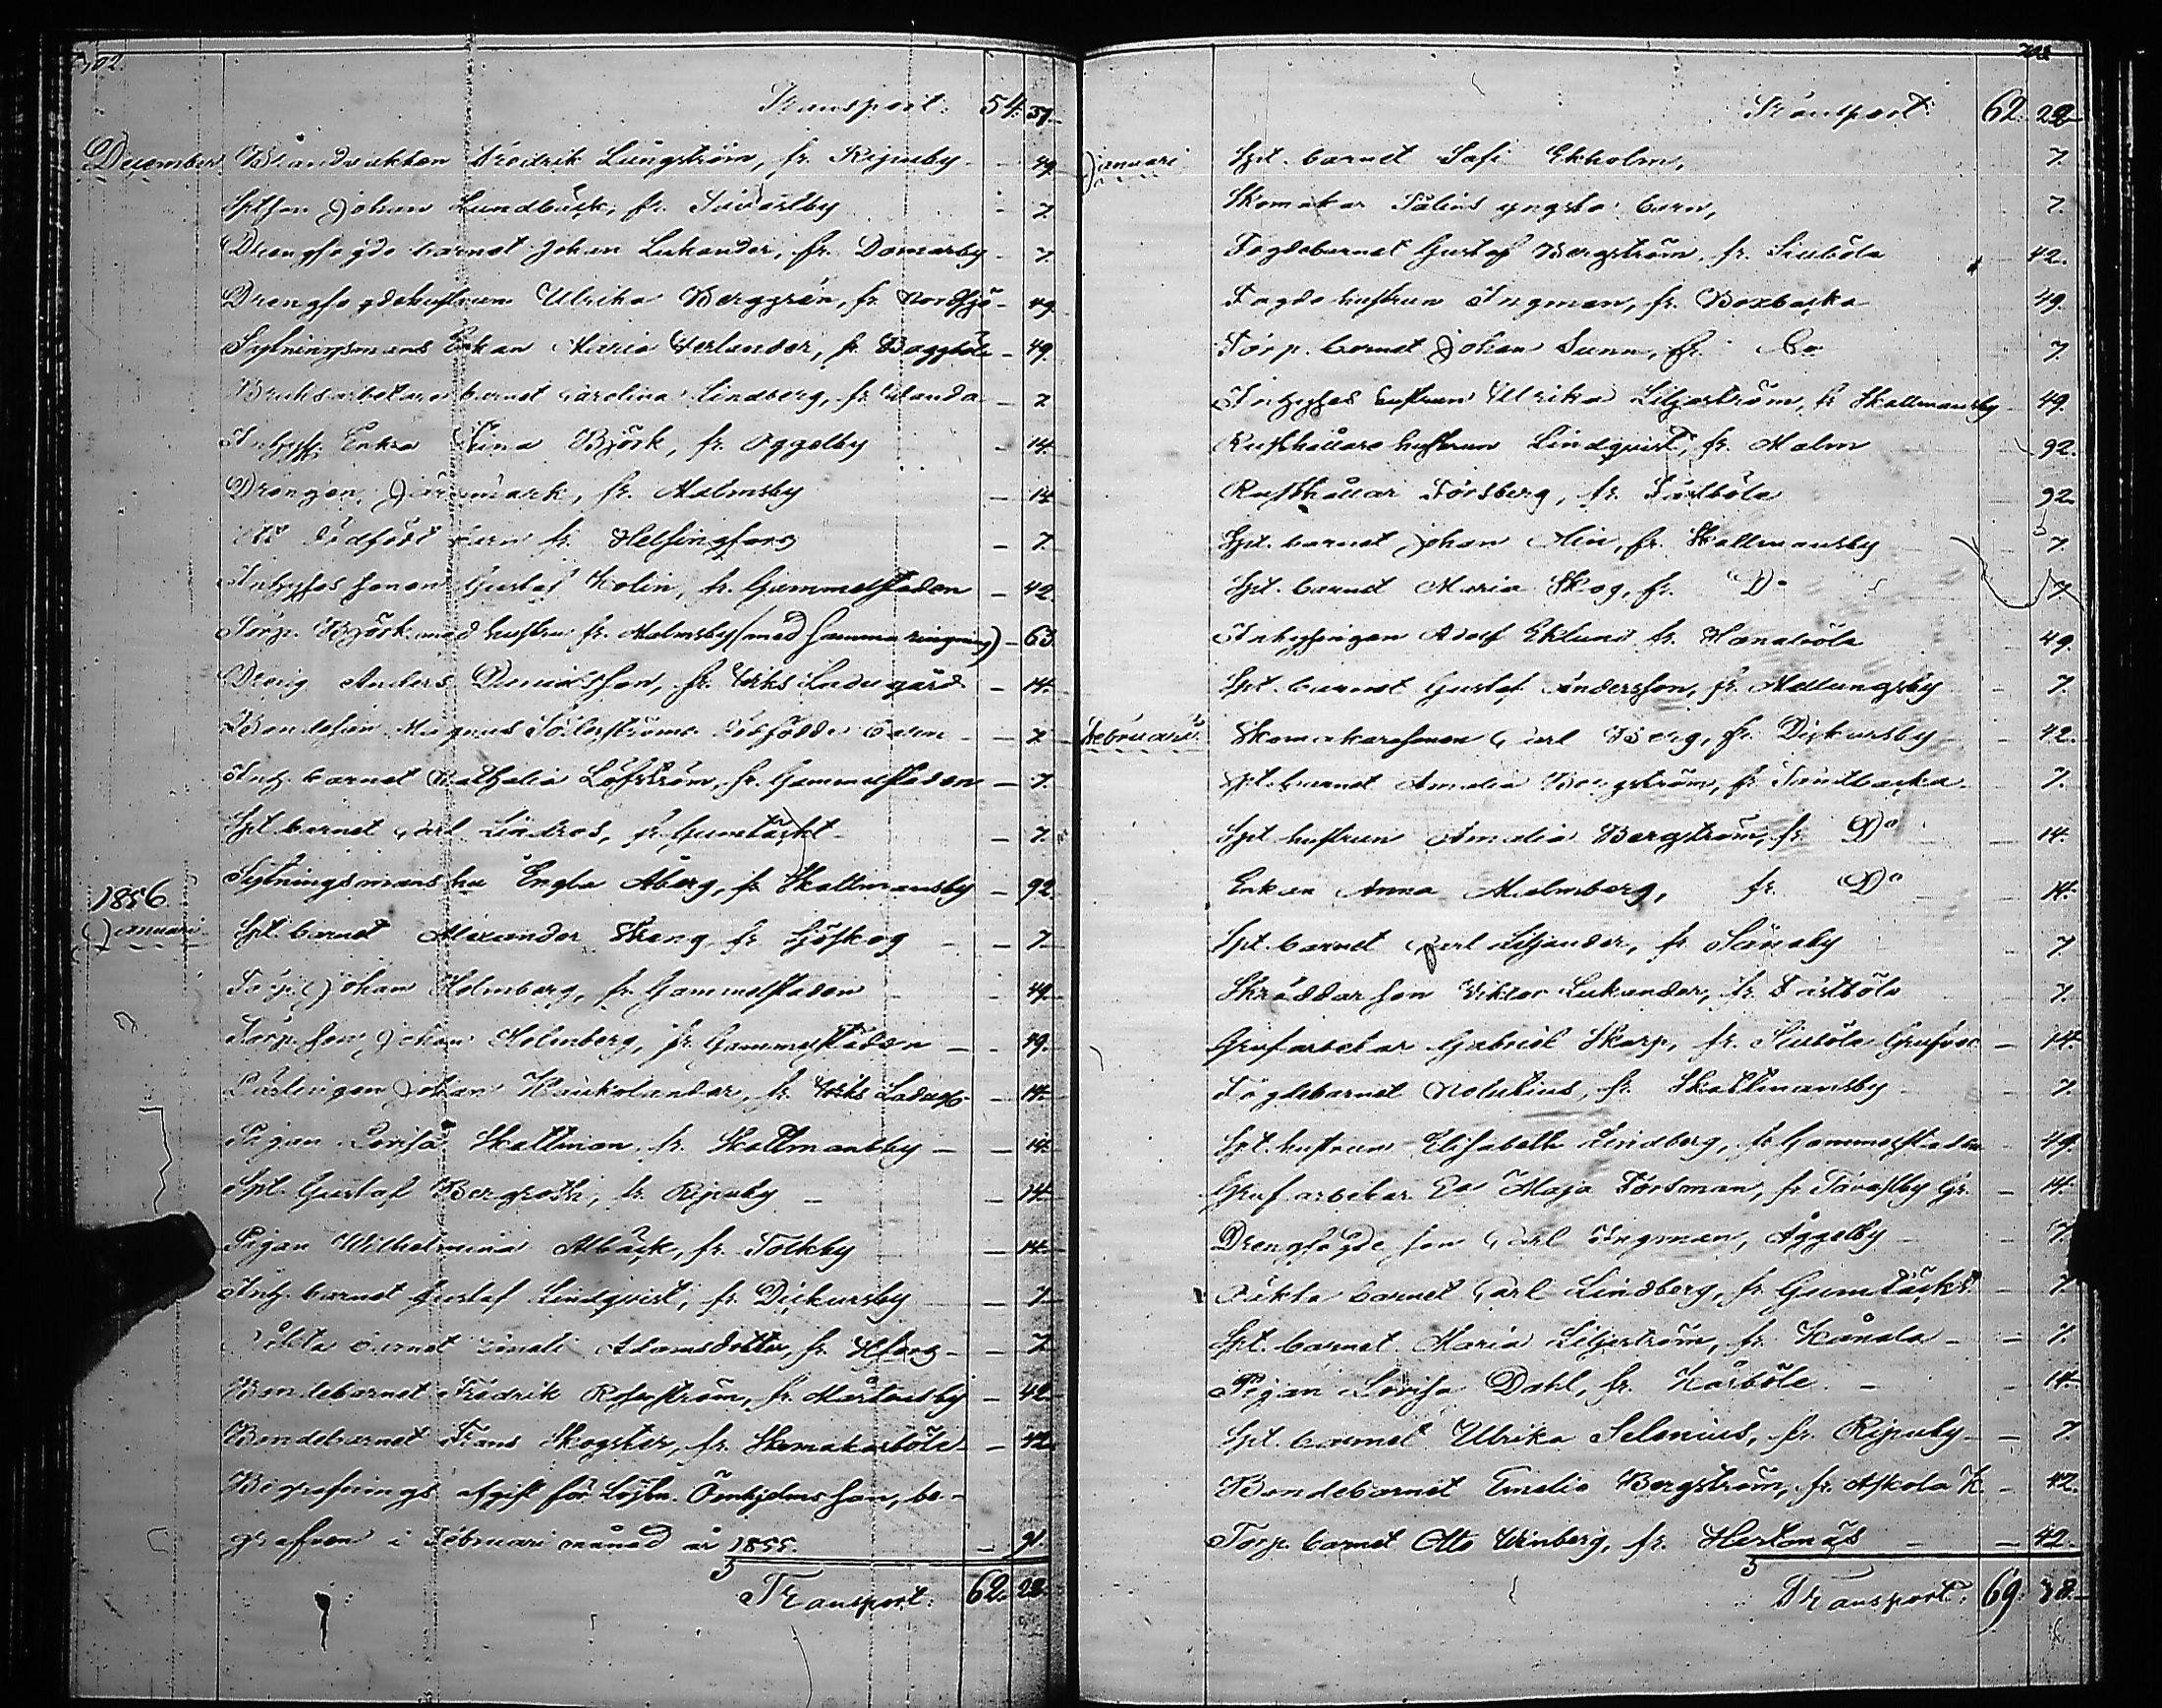 702.
Transport: 54. 37.
December. Brandvakten Fredrik Ljungström, fr. Ripuby - 49.
Sptson Johan Lundbäck, fr. - 7.
Drengfogde barnet Johan Lukander, fr. Domarby - 7.
Drengfogdehustrun Ulrika Berggrén, fr. Nordsjö - 49.
Sytningsmans Enkan Maria Verlander, fr. Baggböle - 49.
Bruksarbetare barnet Carolina Lindberg, fr. - 7
Inhyss. Enkan Stina Björk, fr. Oggelby - 14.
Drengen, fr. Malmsby - 14
Ett dödfödt barn fr. Helsingfors - 7.
Inhyses sonen Gustaf Holin, fr. Gammelstaden - 42.
Torp. Björk med hustru fr. Malmsby (med samma ringning) - 63.
Dreng Anders Danielsson, fr. Wiks Ladugård - 14.
Bondesön Magnus Söderströms dödfödde barn - 7
Inh. barnet Nathalia Löfström, fr. Gammelstaden - 7.
Spt barnet Carl Lindros, fr. Gumtäckt - 7.
Sytningsmans hu Engla Åberg, fr. Skattmansby - 92.
1856.
Januari. Spt. barnet Alexander Streng, fr. Sjöskog - 7
Torp. Johan Holmberg, fr. Gammelstaden - 49.
Torp. son Johan Holmberg, fr. Gammelstaden - 49.
Johan Haukolander, fr. Wiks Ladug. - 14.
Pigan Lovisa Skattman, fr. Skattmansby - 14.
Spt. Gustaf Bergroth, fr. Ripuby - 14
Pigan Wilhelmina Albäck, fr. Tolkby - 14
Inh. barnet Gustaf Lindqvist, fr. Dickursby - 7
Oäkta barnet Adamsdotter, fr. Hfors - 7
Bondebarnet Fredrik Rosenström, fr. Mårtensby - 42
Bondebarnet Frans Skogster, fr. Skomakarböle - 42
Begrafnings afgift för Löjtn. Örnhjelms son, be-
grafven i Februari månad år 1855. - 91.
Transport: 62. 22.
703
Transport: 62. 22
Januari Spt. barnet Sofi Ekholm, 7.
Skomakar yngsta barn, 7.
Fogdebarnet Gustaf Bergström, fr. Siuböle 42.
Fogde hustrun Ingman, fr. Boxbacka 49.
Torp. barnet Johan Sunn, fr. Do 7.
Inhyses hustrun Ulrika Liljeström, fr. Skattmansby 49.
Rusthållare hustrun Lindqvist, fr. Malm 92.
Rusthållar Forsberg, fr. Fastböle 92
Spt. barnet Johan Alin, fr. Skattmansby 7.
Spt. barnet Maria Skog, fr. Do 7
Inhysingen Adolf Eklund fr. Hanaböle 49.
Spt. barnet Gustaf Andersson, fr. Mellungsby 7.
Februari. Skomakaresonen Carl Berg, fr. Dickursby 42.
Spt. barnet Amalia Bergström, fr. Sandbacka 7.
Spt hustrun Amalia Bergström, fr. Do 14.
Enkan Anna Malmberg, fr. Do 14.
Spt. barnet Carl Liljander, fr. 7
Skräddar son Viktor Lukander, fr. Fastböle 7.
Grufarbetar Gabriel Skarp, fr. Siuböle Grufvor - 14.
Fogdebarnet Nolutius, fr. Skattmansby 7.
Spt. hustrun Elisabeth Lindberg, fr. Gammelstaden 49.
Grufarbetar Maja Forsman, fr. Tavastby Gr. - 14.
Drengfogde son Carl Ingman, Åggelby 7.
Oäkta barnet Carl Lindberg, fr. Gumtäckt - 7.
Spt. barnet Maria Liljeström, fr. Hånala - 7.
Pigan Lovisa Dahl, fr. Kårböle - 14.
Spt. barnet Ulrika Selenius, fr. Ripuby - 7.
Bondebarnet Emelie Bergström, fr. Askola K. - 42.
Torp. barnet Otto Winberg, fr. Hertonäs - 42.
Transport: 69. 38.